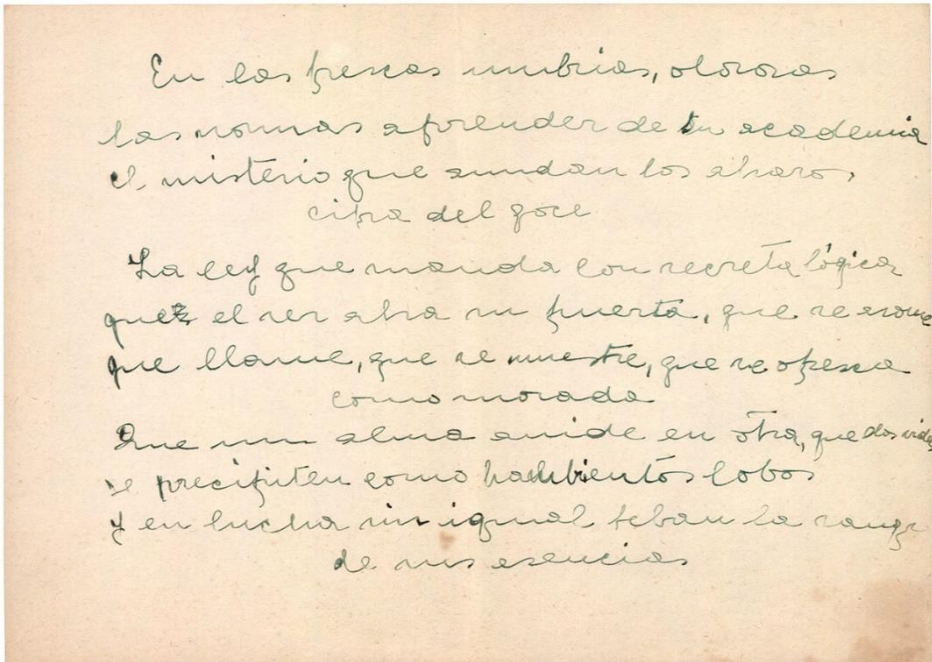 En las frescas umbrias, olorosas
las normas aprender de tu academia
el misterio que anudan los abrazos,
cifra del goce
La ley que manda con secreta lógica
que el ser abra su puerta, que se asome
que llame, que se muestre, que se ofresca
como morada
Que un alma anide en otra, que dos vidas
se precipiten como hambientos lobos
y en lucha sin igual beban la sangre
de sus esencias